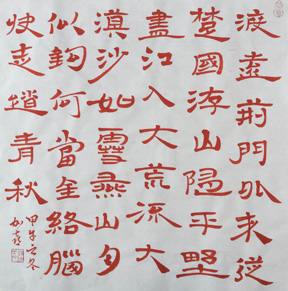 渡遠荊門外來從
楚國游山隨平野
盡江入大荒流大
漠沙如雪燕山月
似鉤何當金絡腦
快走踏青秋
甲午冬